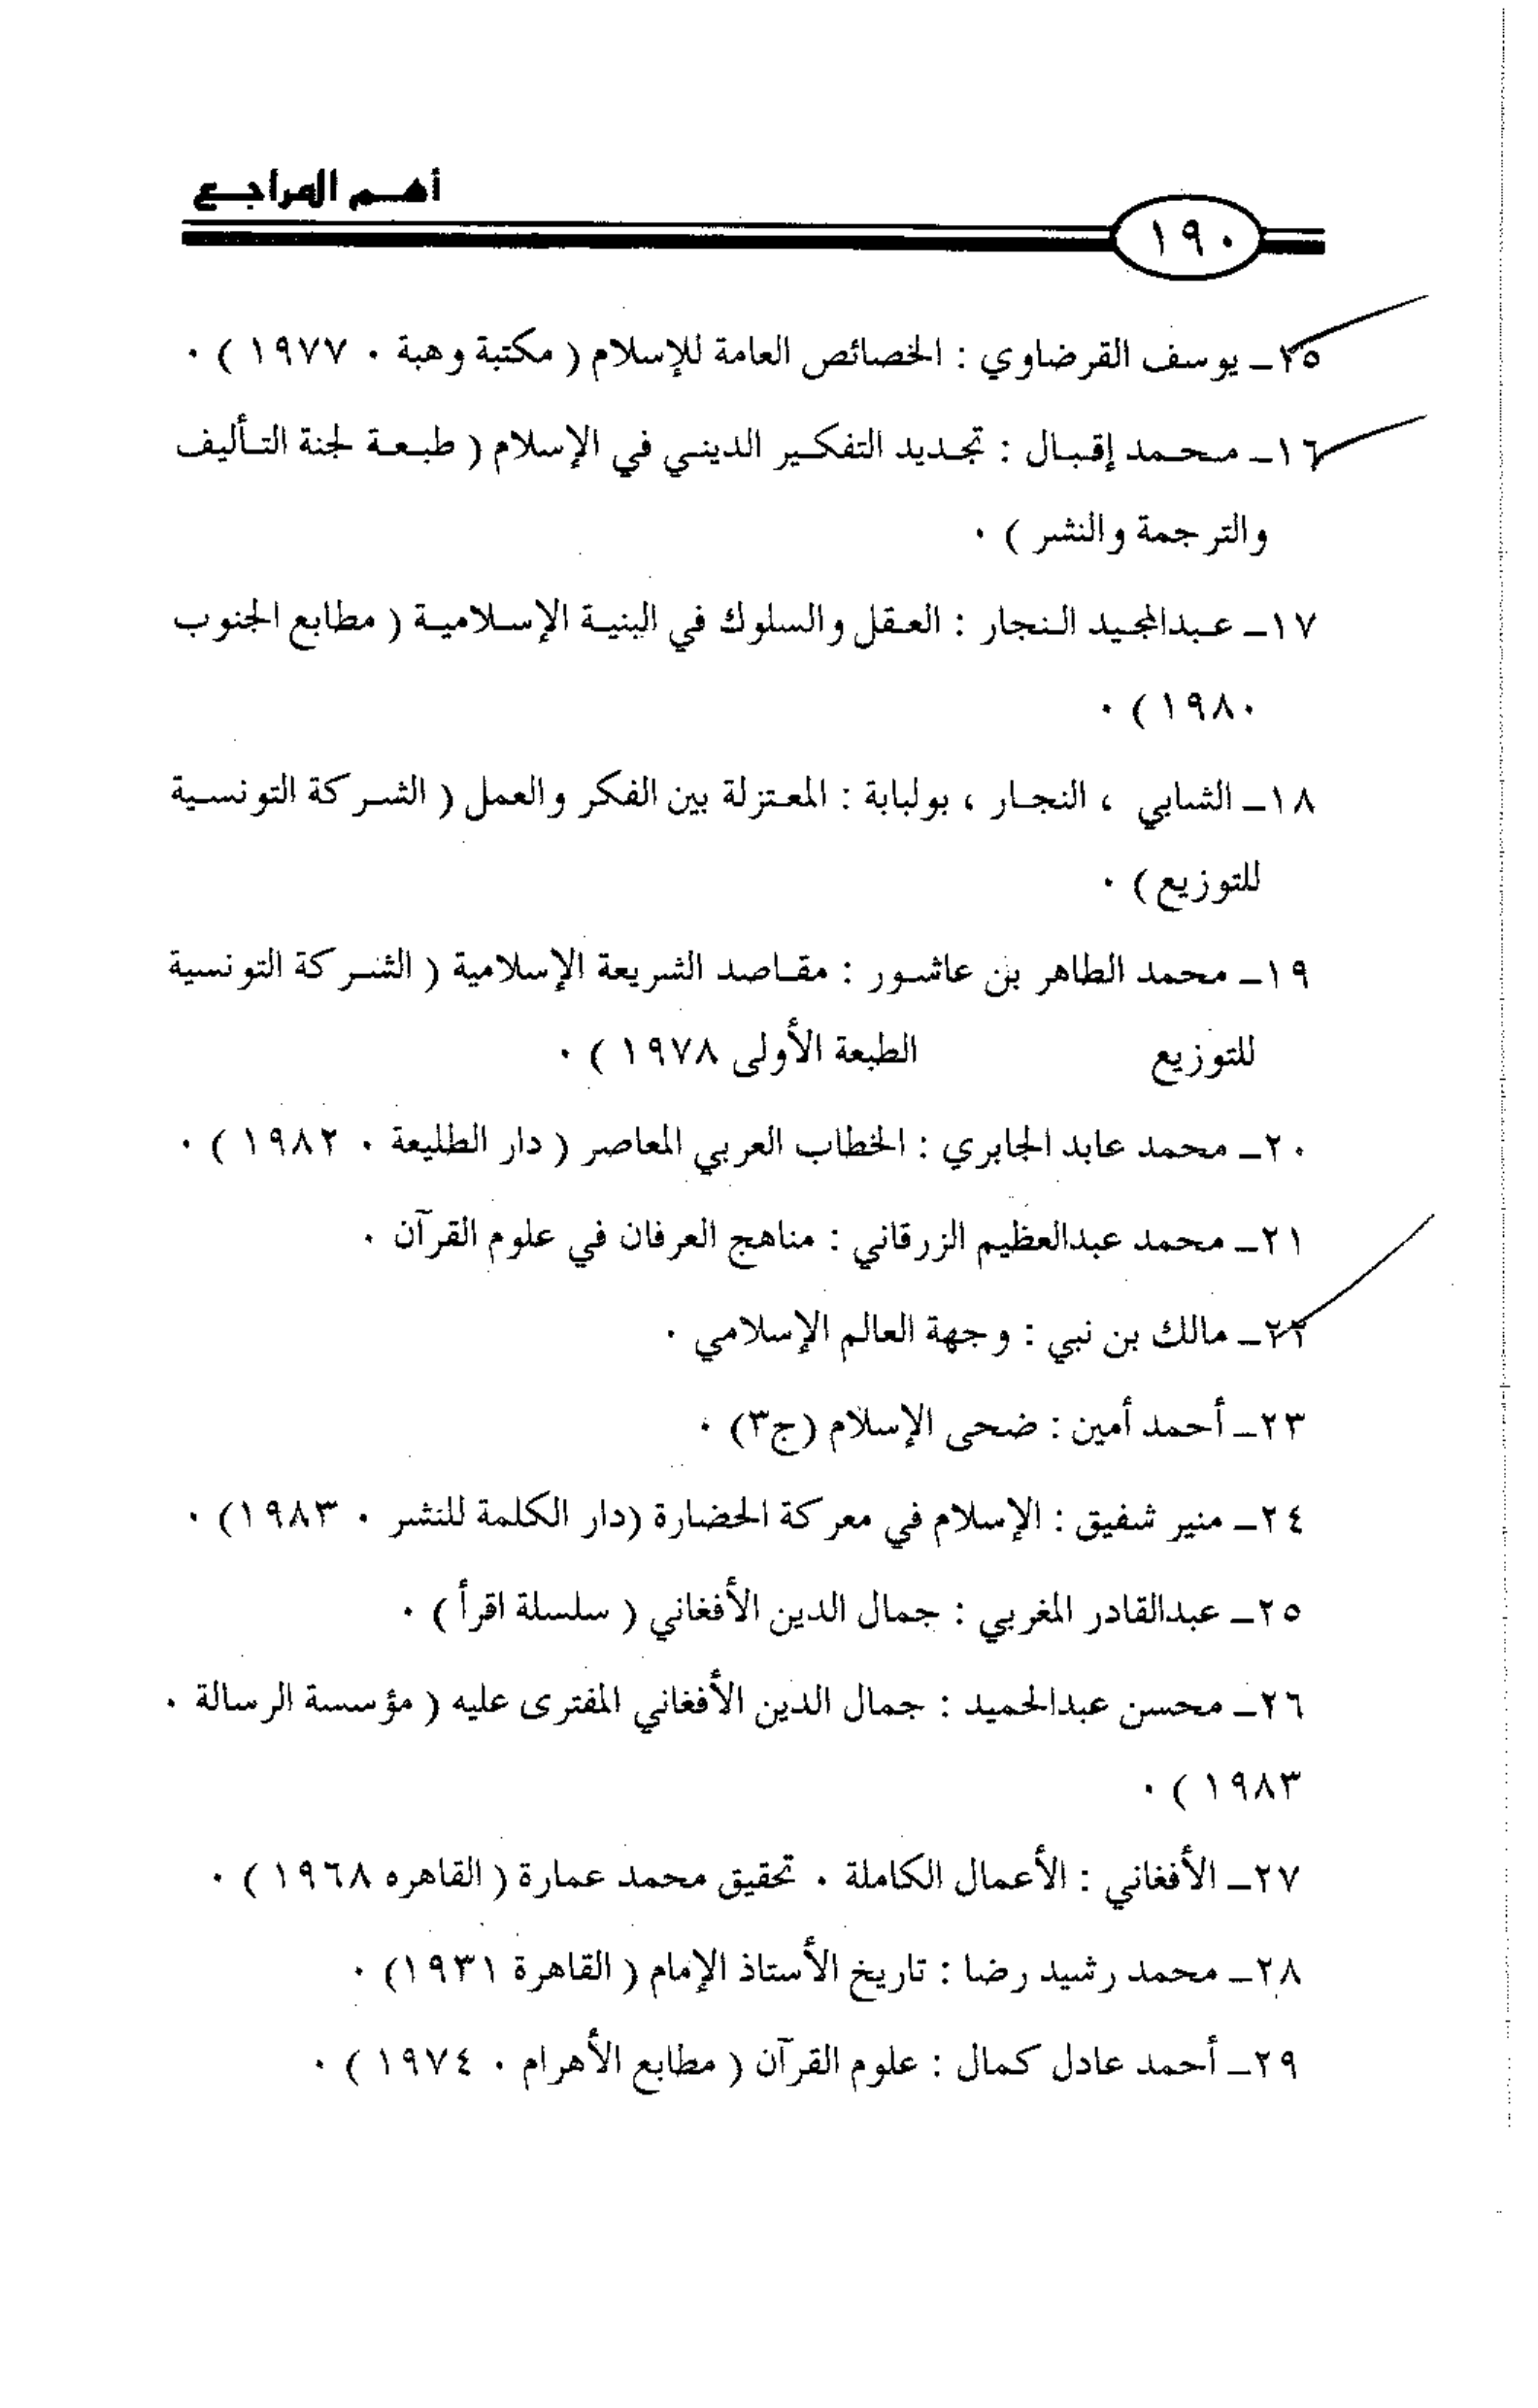 أهم المراجع
١٩٠
٢٥ـ يوسف القرضاوي : الخصائص العامة للإسلام ( مكتبة وهبة . ١٩٧٧ ) .
١٦ـ محمد إقبال : تجديد التفكير الديني في الإسلام ( طبعة لجنة التأليف
والترجمة والنشر ) .
١٧ـ عبدالمجيد النجار : العقل والسلوك في البنية الإسلامية ( مطابع الجنوب
١٩٨٠ ) .
١٨ـ الشابي ، النجار ، بولبابة : المعتزلة بين الفكر والعمل ( الشركة التونسية
للتوزيع ) .
١٩ـ محمد الطاهر بن عاشور : مقاصد الشريعة الإسلامية ( الشركة التونسية
للتوزيع الطبعة الأولى ١٩٧٨ ) .
٢٠ـ محمد عابد الجابري : الخطاب العربي المعاصر ( دار الطليعة . ١٩٨٢ ) .
٢١ـ محمد عبدالعظيم الزرقاني : مناهج العرفان في علوم القرآن .
٢٢ـ مالك بن نبي : وجهة العالم الإسلامي .
٢٣ـ أحمد أمين : ضحى الإسلام (ج٣) .
٢٤ـ منير شفيق : الإسلام في معركة الحضارة (دار الكلمة للنشر . ١٩٨٣) .
٢٥ـ عبدالقادر المغربي : جمال الدين الأفغاني ( سلسلة اقرأ ) .
٢٦ـ محسن عبدالحميد : جمال الدين الأفغاني المفترى عليه ( مؤسسة الرسالة .
١٩٨٣ ) .
٢٧ـ الأفغاني : الأعمال الكاملة . تحقيق محمد عمارة ( القاهره ١٩٦٨ ) .
٢٨ـ محمد رشيد رضا : تاريخ الأستاذ الإمام ( القاهرة ١٩٣١) .
٢٩ـ أحمد عادل كمال : علوم القرآن ( مطابع الأهرام . ١٩٧٤ ) .